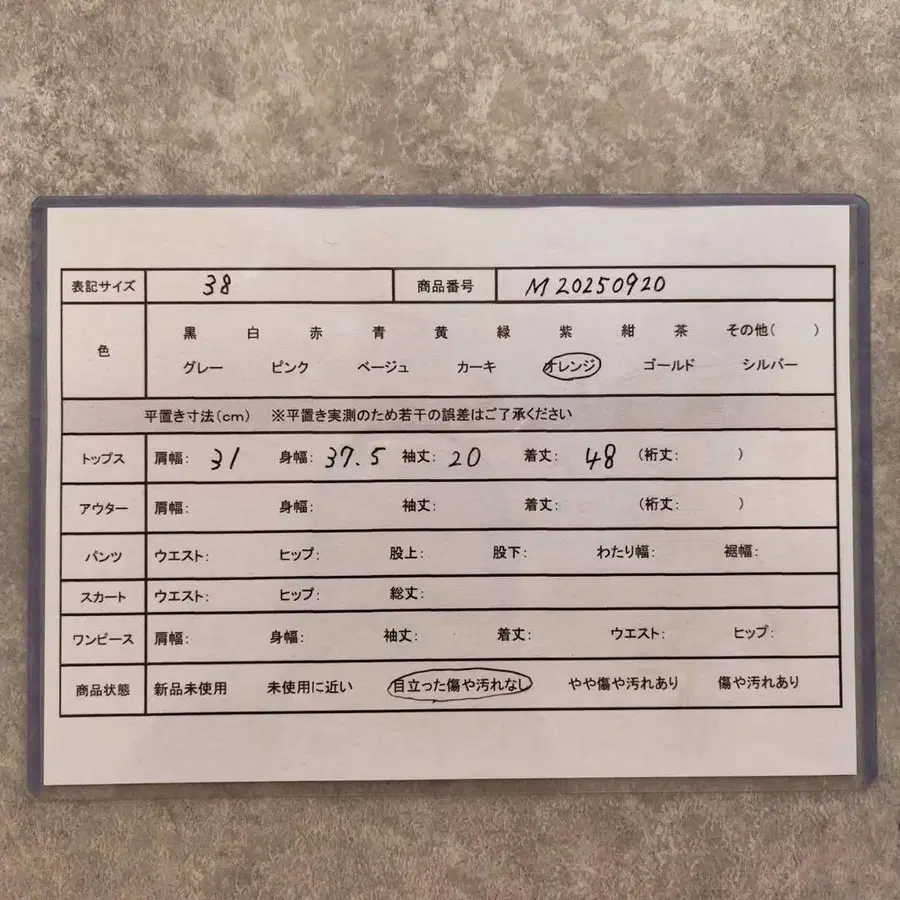 表記サイズ 38 商品番号 M20250920
色 黒 白 赤 青 黄 緑 紫 紺 茶 その他( )
グレー ピンク ベージュ カーキ オレンジ ゴールド シルバー
平置き寸法(cm) ※平置き実測のため若干の誤差はご了承ください
トップス 肩幅: 31 身幅: 37.5 袖丈: 20 着丈: 48 (裄丈: )
アウター 肩幅: 身幅: 袖丈: 着丈: (裄丈: )
パンツ ウエスト: ヒップ: 股上: 股下: わたり幅: 裾幅:
スカート ウエスト: ヒップ: 総丈:
ワンピース 肩幅: 身幅: 袖丈: 着丈: ウエスト: ヒップ:
商品状態 新品未使用 未使用に近い 目立った傷や汚れなし やや傷や汚れあり 傷や汚れあり